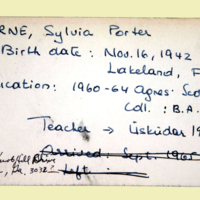 RNE, Sylvia Porter
Birth date : Nov. 16, 1942
Lakeland, F
ucation : 1960-64 Agnes Sco
Coll. : B.A.
Teacher → Üsküdar 19
Arrived: Sept. 1965
Drive
Left